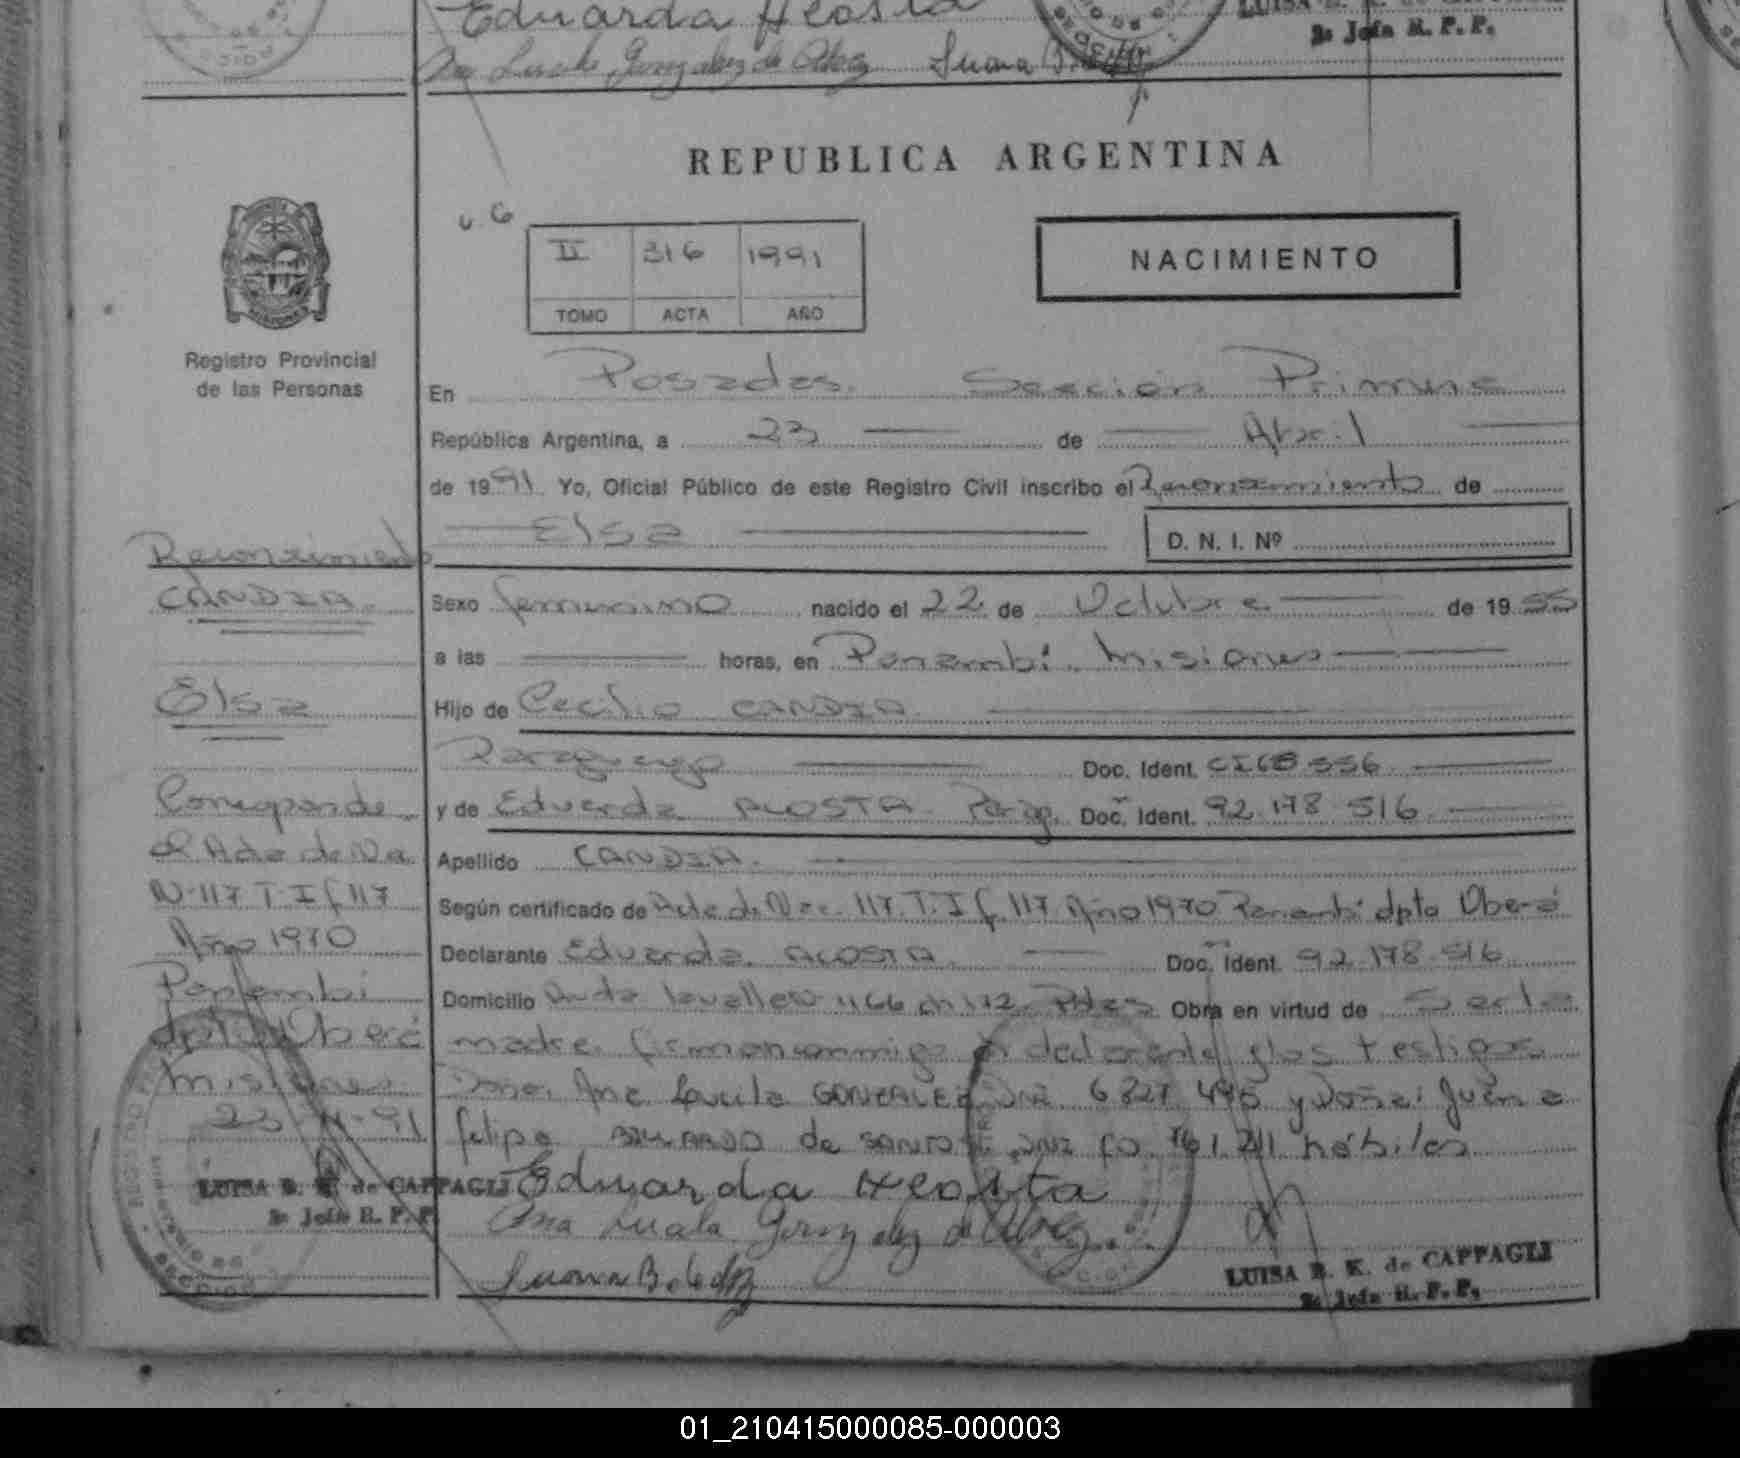 Eduarda Acosta
2o Jefa R. P. P.
REPUBLICA ARGENTINA
II 316 1991
TOMO ACTA AÑO
NACIMIENTO
Registro Provincial
de las Personas
En Posadas. Sección Primera
República Argentina, a 23 de Abril
de 1991 Yo, Oficial Público de este Registro Civil inscribo el Reconocimiento de
Elsa
D. N. I. Nº
Reconocimiento
CANDIA.
Elsa
Corresponde
al Acta de Na.
Nº 117 T. I f 117
Año 1970
Panambi
dpto Oberá
Misiones
23-4-91
LUISA B. K. de CAPPAGLI
2o Jefa R. P. P.
Sexo femenino nacido el 22 de Octubre de 1955
a las horas, en Panambi. Misiones
Hijo de Cecilio CANDIA
Paraguayo Doc. Ident. CI
y de Eduarda ACOSTA Parag. Doc. Ident. 92.178.516
Apellido CANDIA.
Según certificado de Acta de Nac. 117. T. I f. 117 Año 1970 Panambi dpto Oberá
Declarante Eduarda ACOSTA Doc. Ident. 92.178.516
Domicilio Avda Lavalle 1166 ch 172 Pdas Obra en virtud de Ser la
madre. firman conmigo el declarante y los testigos
Doña: Ana Lucila GONZALEZ DNI 6 827 495 y Doña: Juana
felipa de DNI hábiles
Eduarda Acosta
Ana Lucila Gonzalez de
Juana B.
LUISA B. K. de CAPPAGLI
2o Jefa R. P. P.
01_210415000085-000003